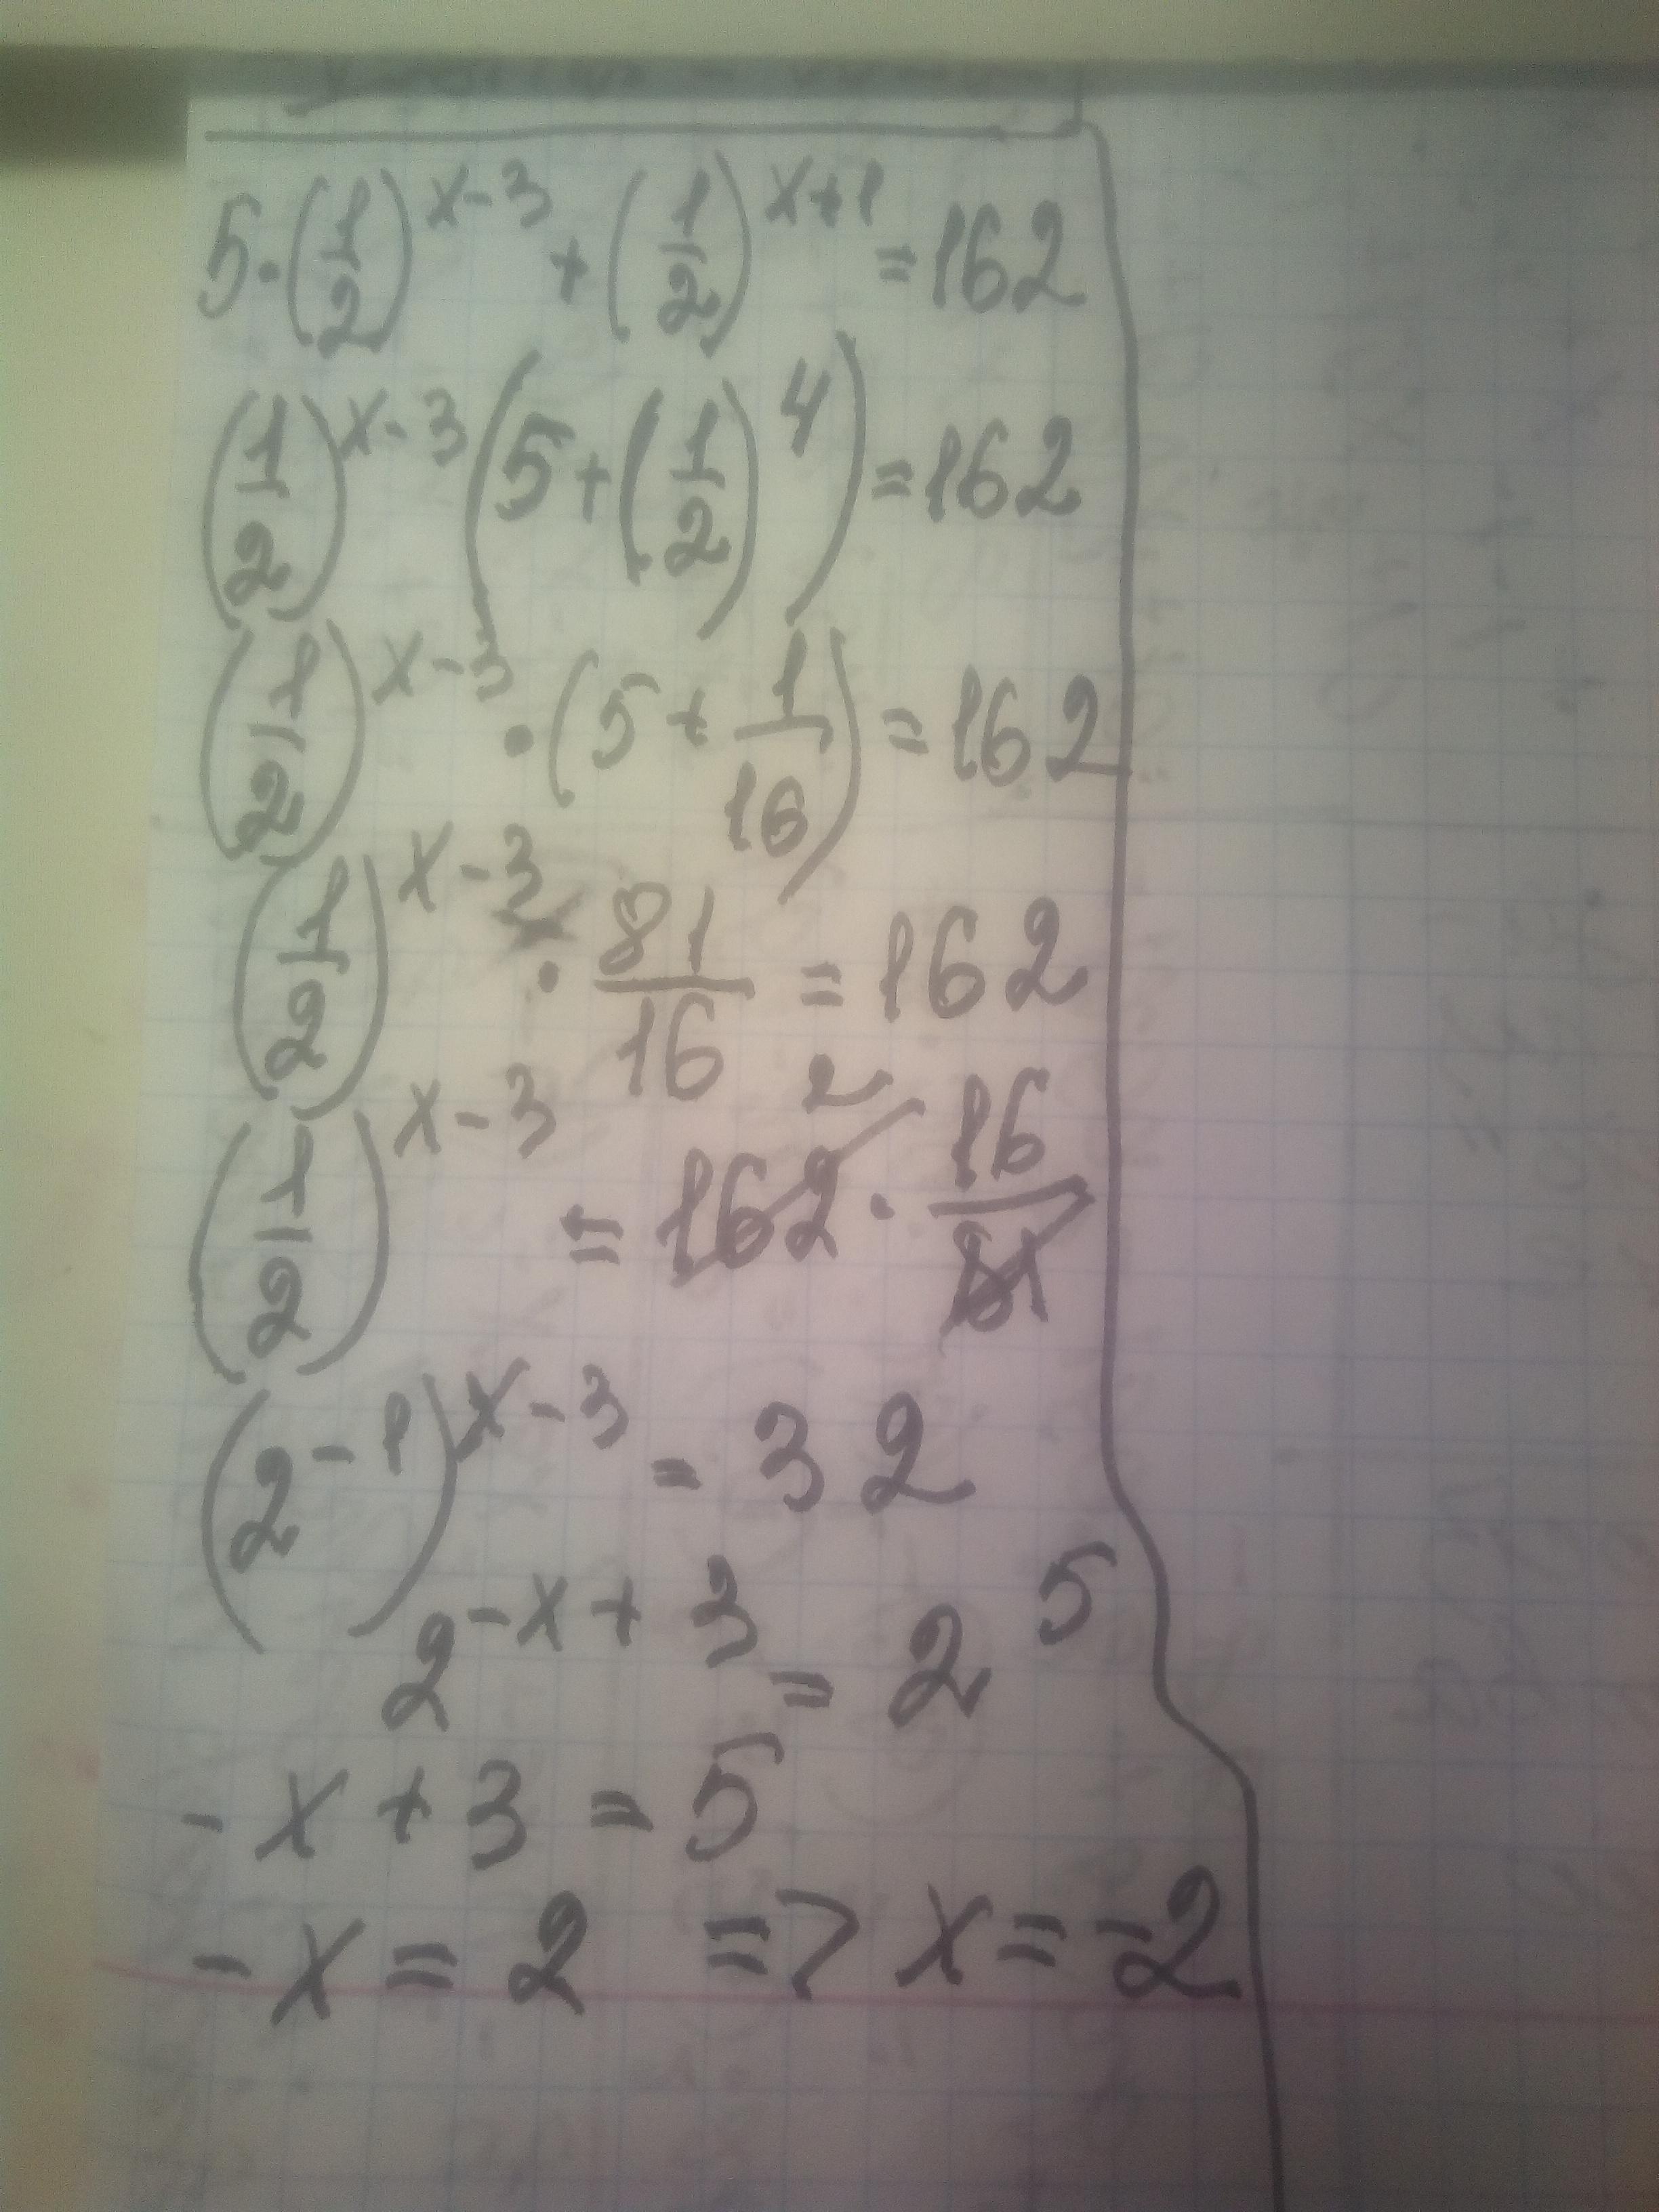 5·(1/2)^(x-3) + (1/2)^(x+1) = 162
(1/2)^(x-3) (5+(1/2)^4) = 162
(1/2)^(x-3) · (5 + 1/16) = 162
(1/2)^(x-3) · 81/16 = 162
2
(1/2)^(x-3) = 162 · 16/81
(2^-1)^(x-3) = 32
2^(-x+3) = 2^5
-x+3=5
-x=2 => x=-2